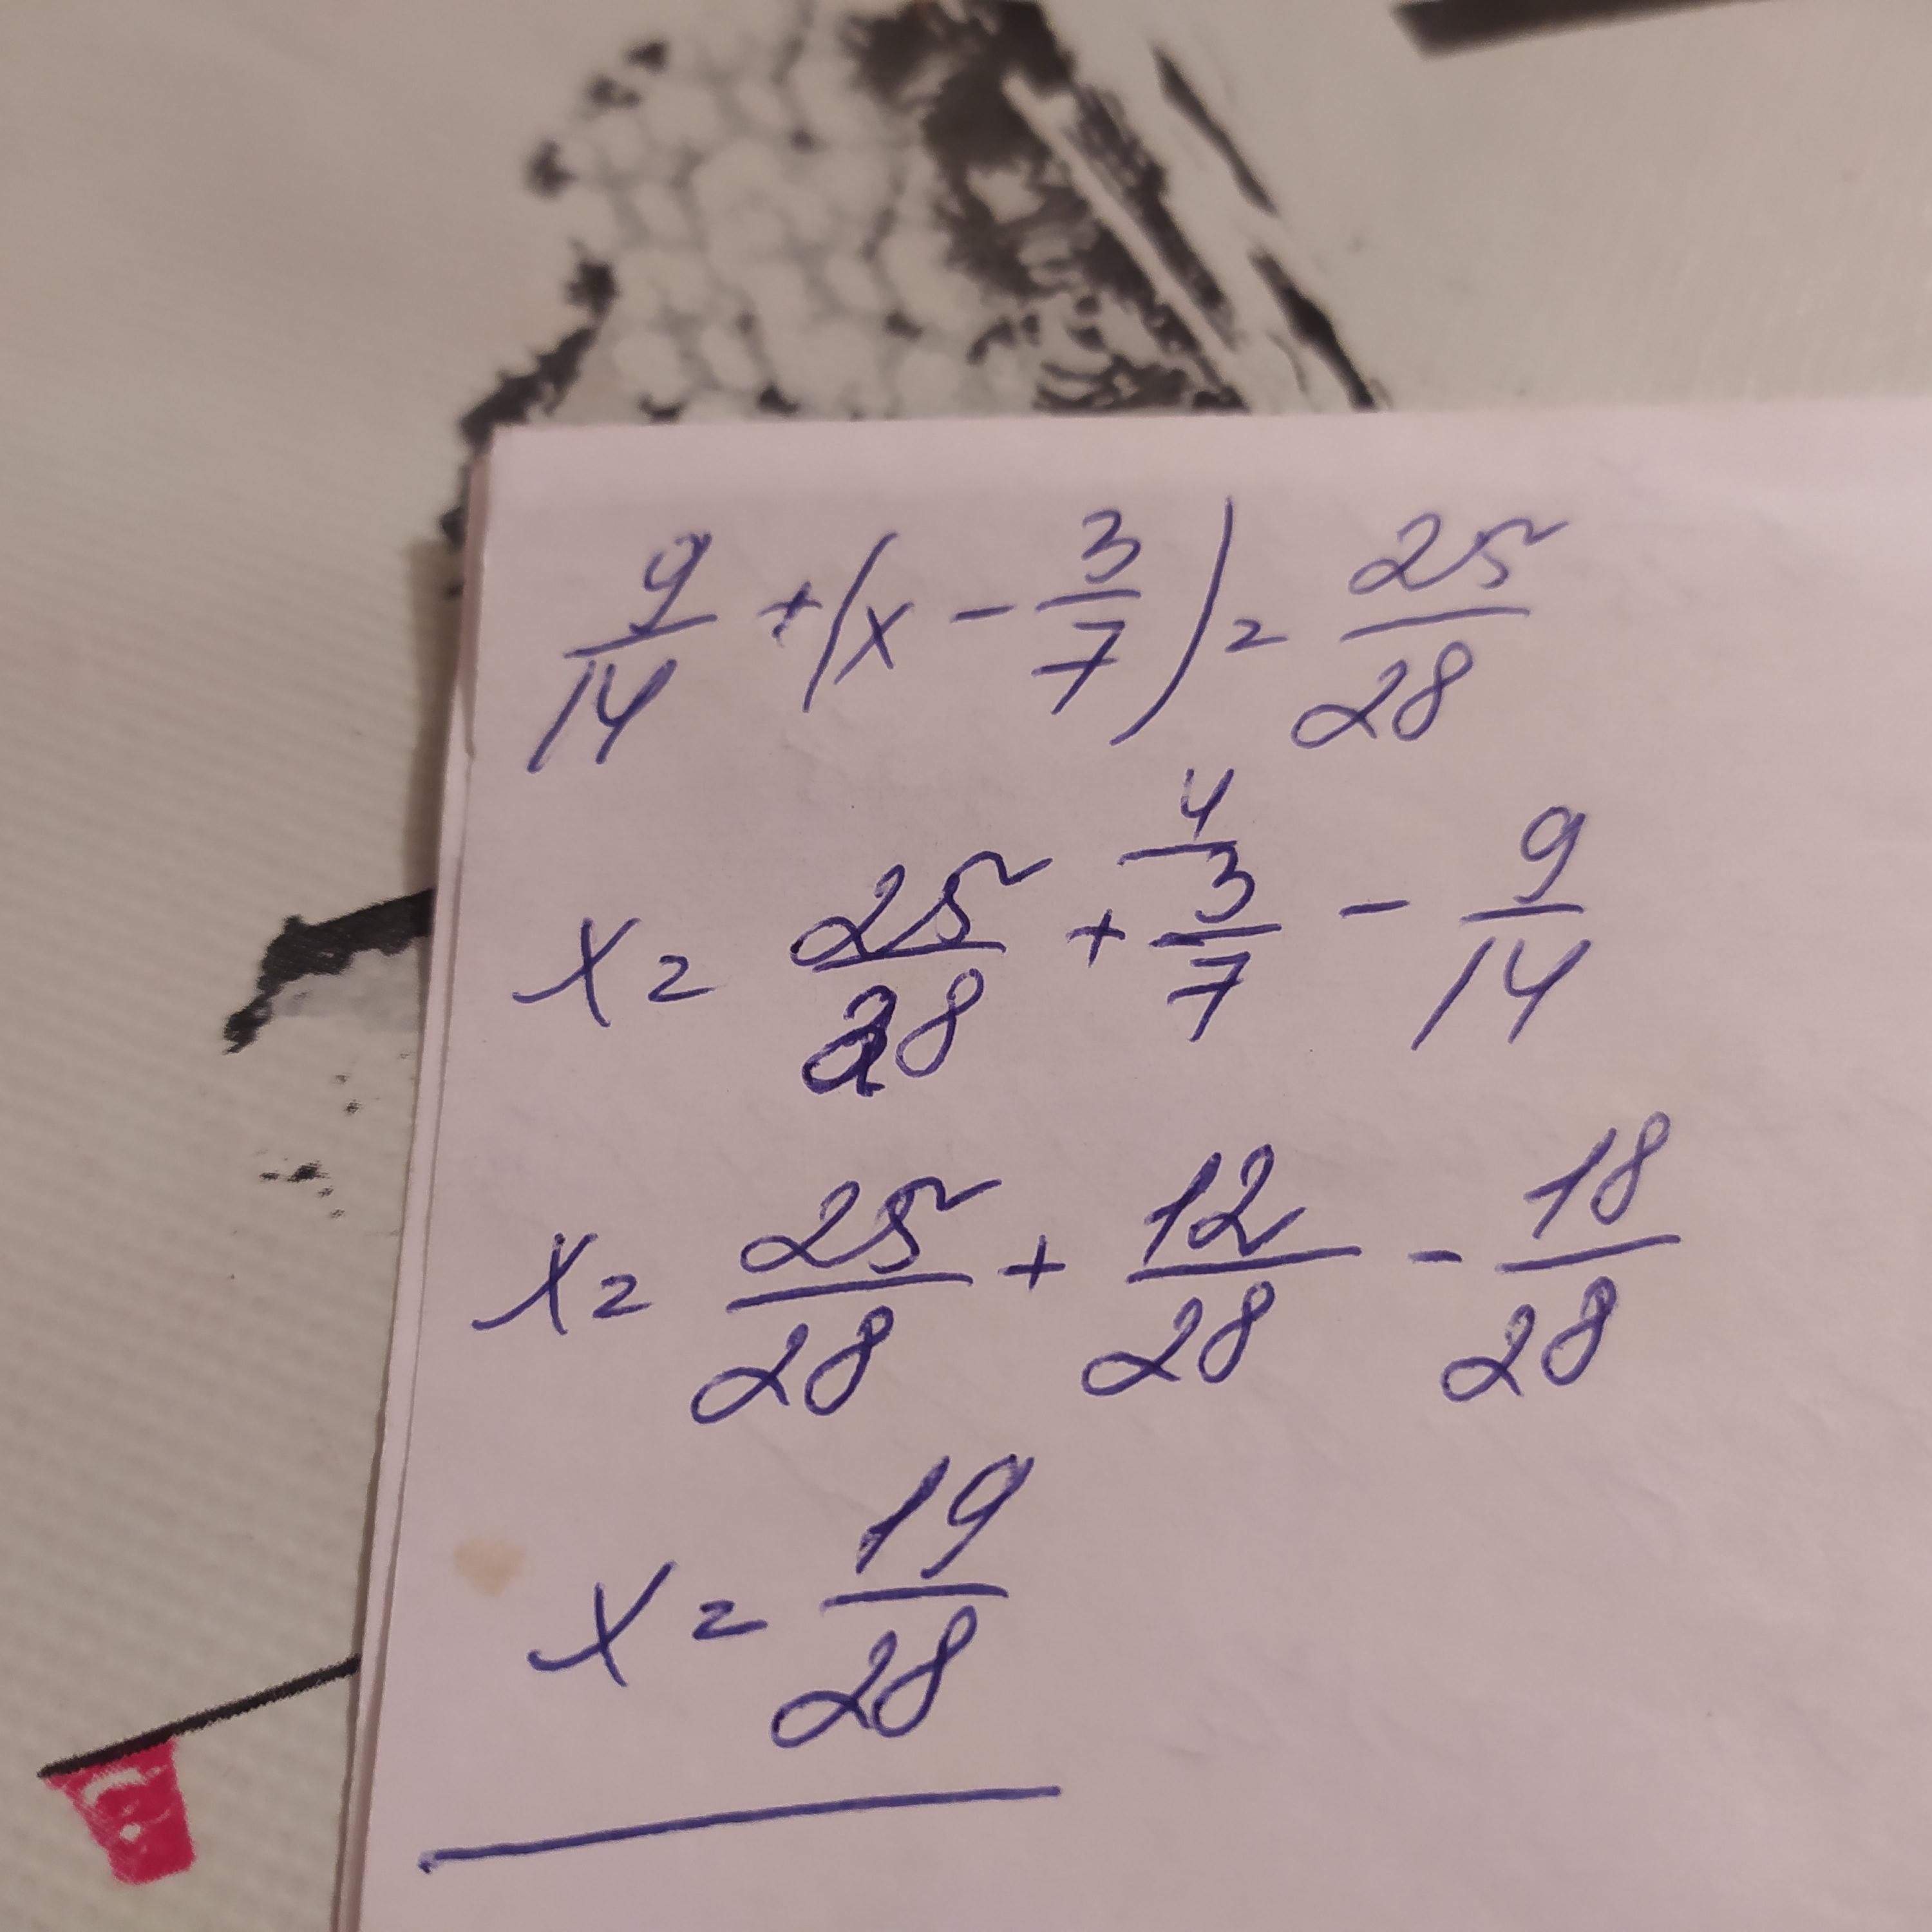 9/14 + (x - 3/7) = 25/28
4
x = 25/28 + 3/7 - 9/14
x = 25/28 + 12/28 - 18/28
x = 19/28